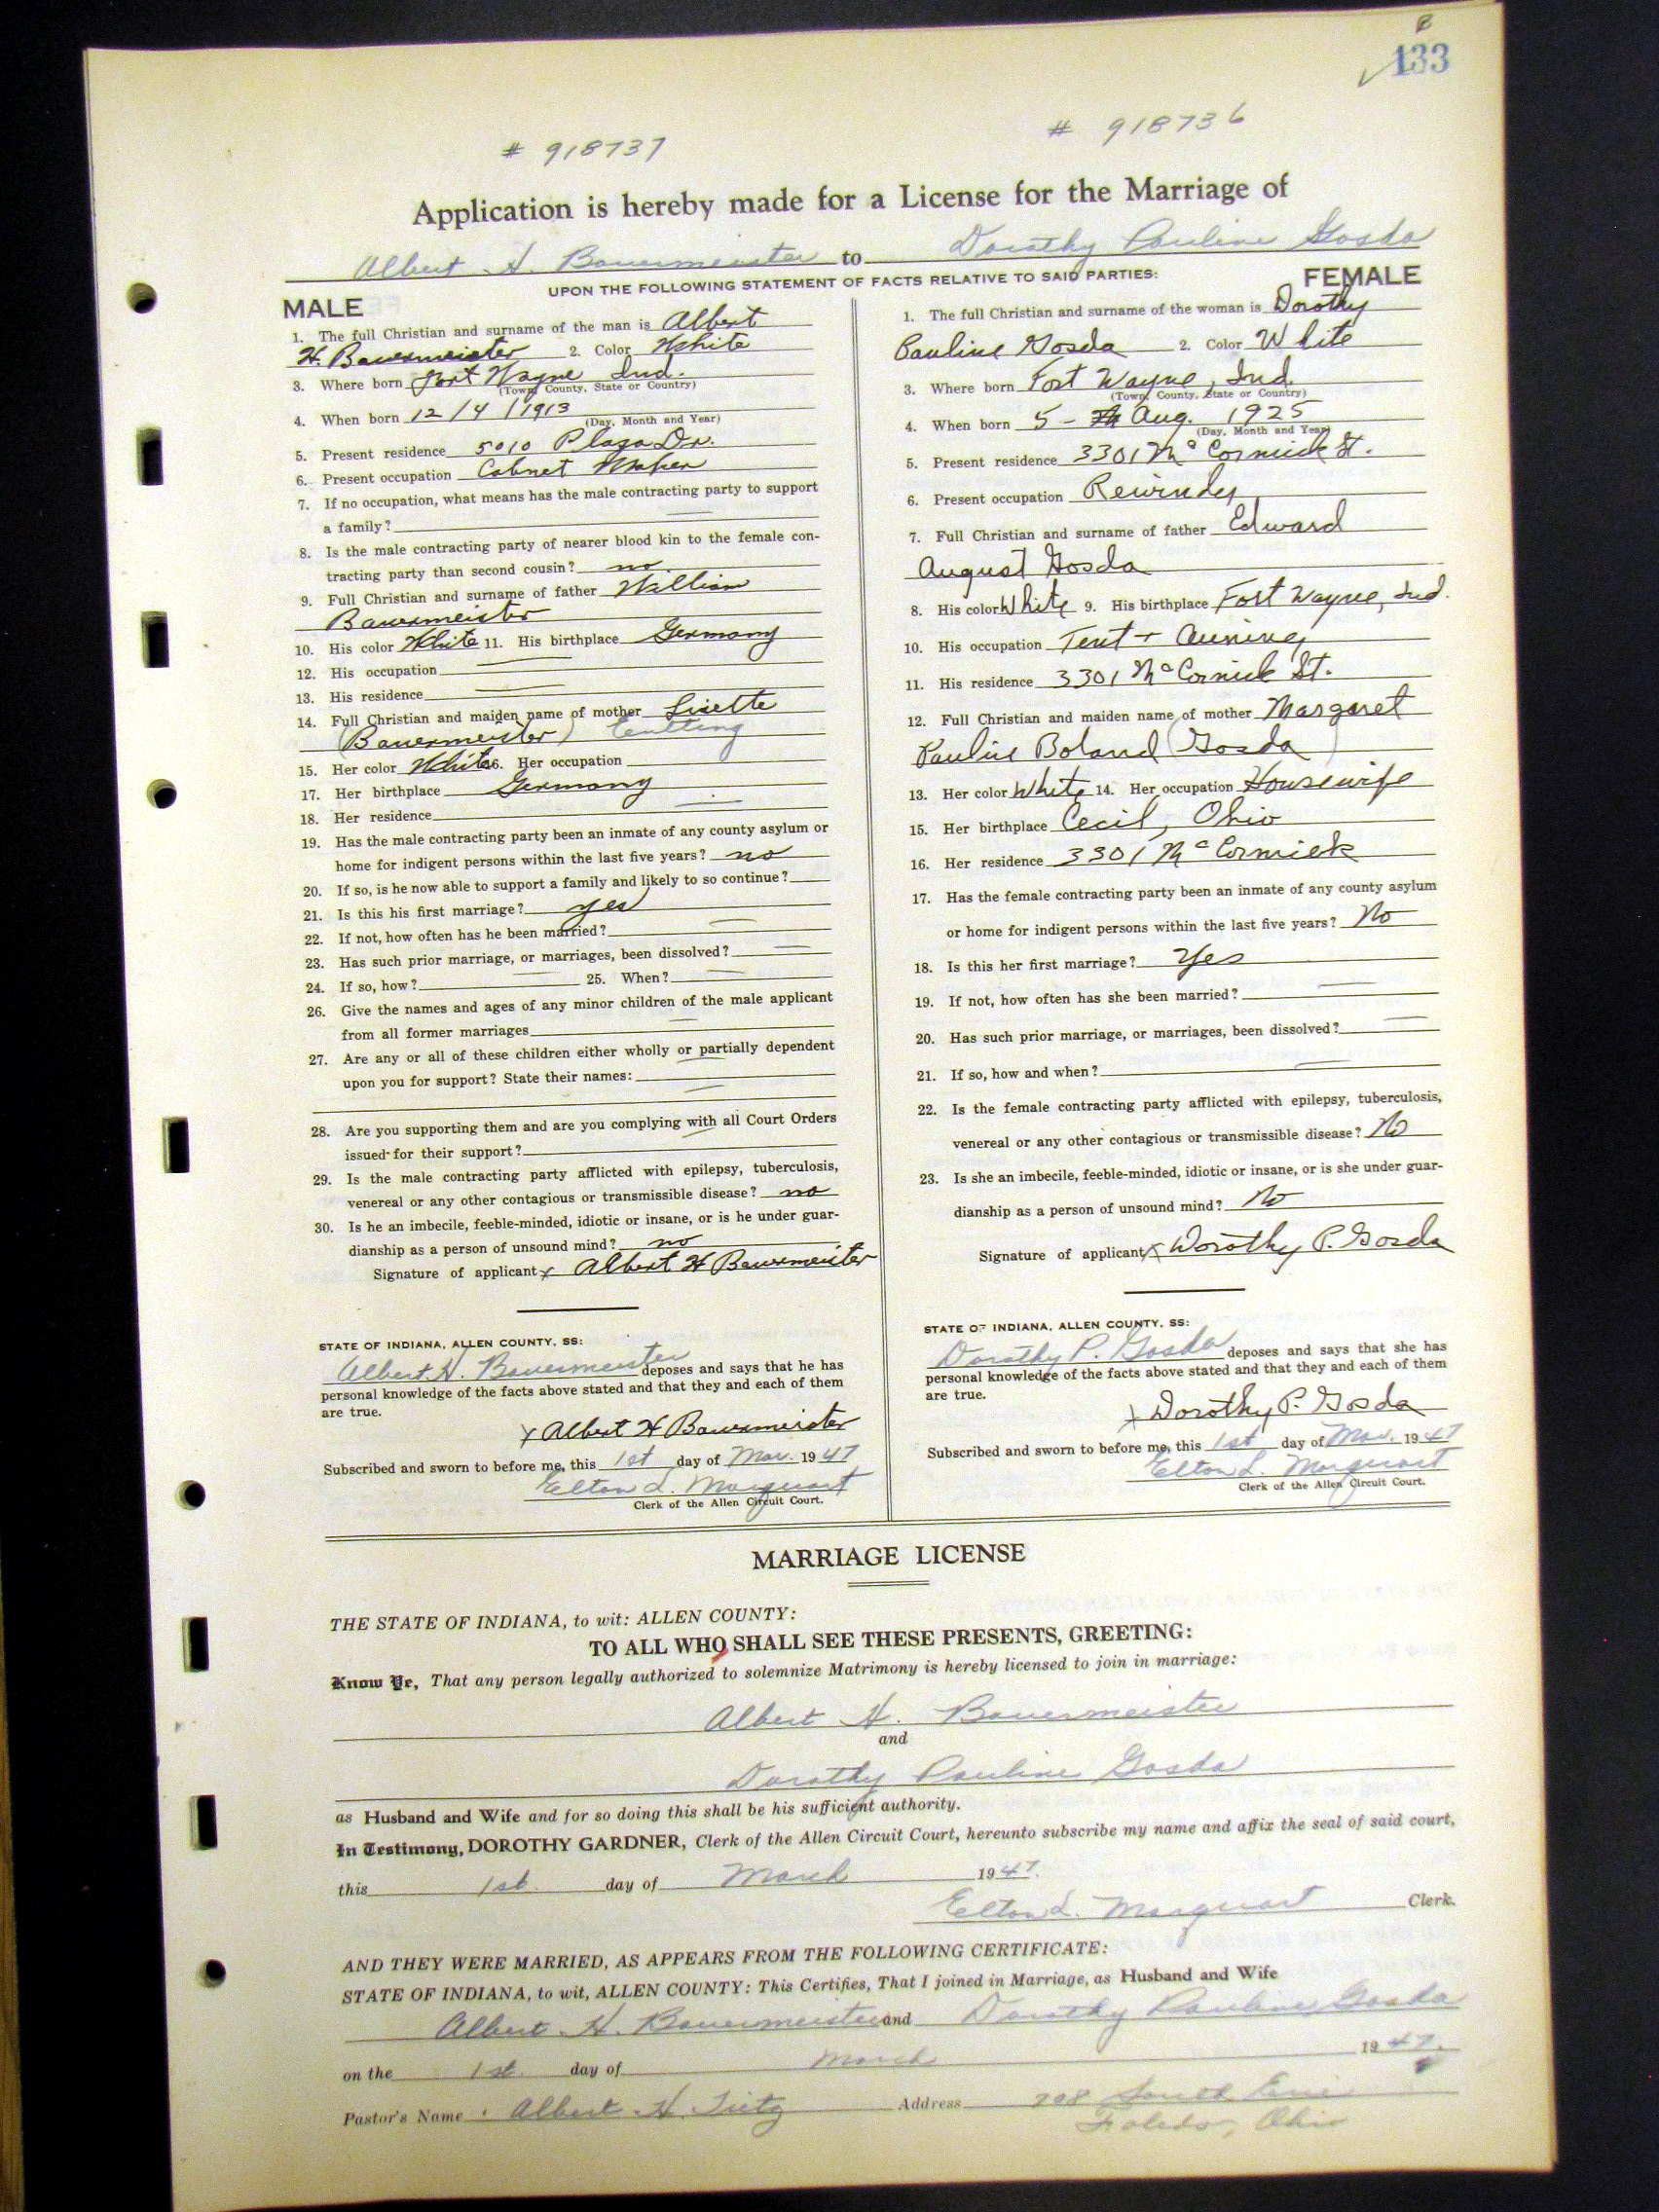 8
133
# 918737
# 918736
Application is hereby made for a License for the Marriage of
Albert H. Bauermeister to Dorothy Pauline Gosda
UPON THE FOLLOWING STATEMENT OF FACTS RELATIVE TO SAID PARTIES:
MALE
1. The full Christian and surname of the man is Albert
H. Bauermeister 2. Color White
3. Where born Fort Wayne Ind.
(Town, County, State or Country)
4. When born 12/4/1913
(Day, Month and Year)
5. Present residence 5010 Plaza Dr.
6. Present occupation Cabnet Maker
7. If no occupation, what means has the male contracting party to support
a family?
8. Is the male contracting party of nearer blood kin to the female con-
tracting party than second cousin? no
9. Full Christian and surname of father William
Bauermeister
10. His color White 11. His birthplace Germany
12. His occupation
13. His residence
14. Full Christian and maiden name of mother Lisette
(Bauermeister)
15. Her color White 16. Her occupation
17. Her birthplace Germany
18. Her residence
19. Has the male contracting party been an inmate of any county asylum or
home for indigent persons within the last five years? no
20. If so, is he now able to support a family and likely to so continue?
21. Is this his first marriage? yes
22. If not, how often has he been married?
23. Has such prior marriage, or marriages, been dissolved?
24. If so, how? 25. When?
26. Give the names and ages of any minor children of the male applicant
from all former marriages
27. Are any or all of these children either wholly or partially dependent
upon you for support? State their names:
28. Are you supporting them and are you complying with all Court Orders
issued for their support?
29. Is the male contracting party afflicted with epilepsy, tuberculosis,
venereal or any other contagious or transmissible disease? no
30. Is he an imbecile, feeble-minded, idiotic or insane, or is he under guar-
dianship as a person of unsound mind? no
Signature of applicant x Albert H Bauermeister
STATE OF INDIANA, ALLEN COUNTY, SS:
Albert H. Bauermeister deposes and says that he has
personal knowledge of the facts above stated and that they and each of them
are true.
x Albert H Bauermeister
Subscribed and sworn to before me, this 1st day of Mar. 1947
Elton L. Marquart
Clerk of the Allen Circuit Court.
FEMALE
1. The full Christian and surname of the woman is Dorothy
Pauline Gosda 2. Color White
3. Where born Fort Wayne, Ind.
(Town, County, State or Country)
4. When born 5 - Aug. 1925
(Day, Month and Year)
5. Present residence 3301 McCormick St.
6. Present occupation Rewinder
7. Full Christian and surname of father Edward
August Gosda
8. His color White 9. His birthplace Fort Wayne, Ind.
10. His occupation Tent + Awning
11. His residence 3301 McCormick St.
12. Full Christian and maiden name of mother Margaret
Pauline Boland (Gosda)
13. Her color White 14. Her occupation Housewife
15. Her birthplace Cecil, Ohio
16. Her residence 3301 McCormick
17. Has the female contracting party been an inmate of any county asylum
or home for indigent persons within the last five years? No
18. Is this her first marriage? Yes
19. If not, how often has she been married?
20. Has such prior marriage, or marriages, been dissolved?
21. If so, how and when?
22. Is the female contracting party afflicted with epilepsy, tuberculosis,
venereal or any other contagious or transmissible disease? No
23. Is she an imbecile, feeble-minded, idiotic or insane, or is she under guar-
dianship as a person of unsound mind? No
Signature of applicant x Dorothy P. Gosda
STATE OF INDIANA, ALLEN COUNTY, SS:
Dorothy P. Gosda deposes and says that she has
personal knowledge of the facts above stated and that they and each of them
are true.
x Dorothy P. Gosda
Subscribed and sworn to before me, this 1st day of Mar. 1947
Elton L. Marquart
Clerk of the Allen Circuit Court.
MARRIAGE LICENSE
THE STATE OF INDIANA, to wit: ALLEN COUNTY:
TO ALL WHO SHALL SEE THESE PRESENTS, GREETING:
Know Ye, That any person legally authorized to solemnize Matrimony is hereby licensed to join in marriage:
Albert H. Bauermeister
and
Dorothy Pauline Gosda
as Husband and Wife and for so doing this shall be his sufficient authority.
In Testimony, DOROTHY GARDNER, Clerk of the Allen Circuit Court, hereunto subscribe my name and affix the seal of said court,
this 1st day of March 1947.
Elton L. Marquart Clerk.
AND THEY WERE MARRIED, AS APPEARS FROM THE FOLLOWING CERTIFICATE:
STATE OF INDIANA, to wit, ALLEN COUNTY: This Certifies, That I joined in Marriage, as Husband and Wife
Albert H. Bauermeister and Dorothy Pauline Gosda
on the 1st day of March 1947.
Pastor's Name Albert H. Tietz Address 708 South Erie
Toledo, Ohio